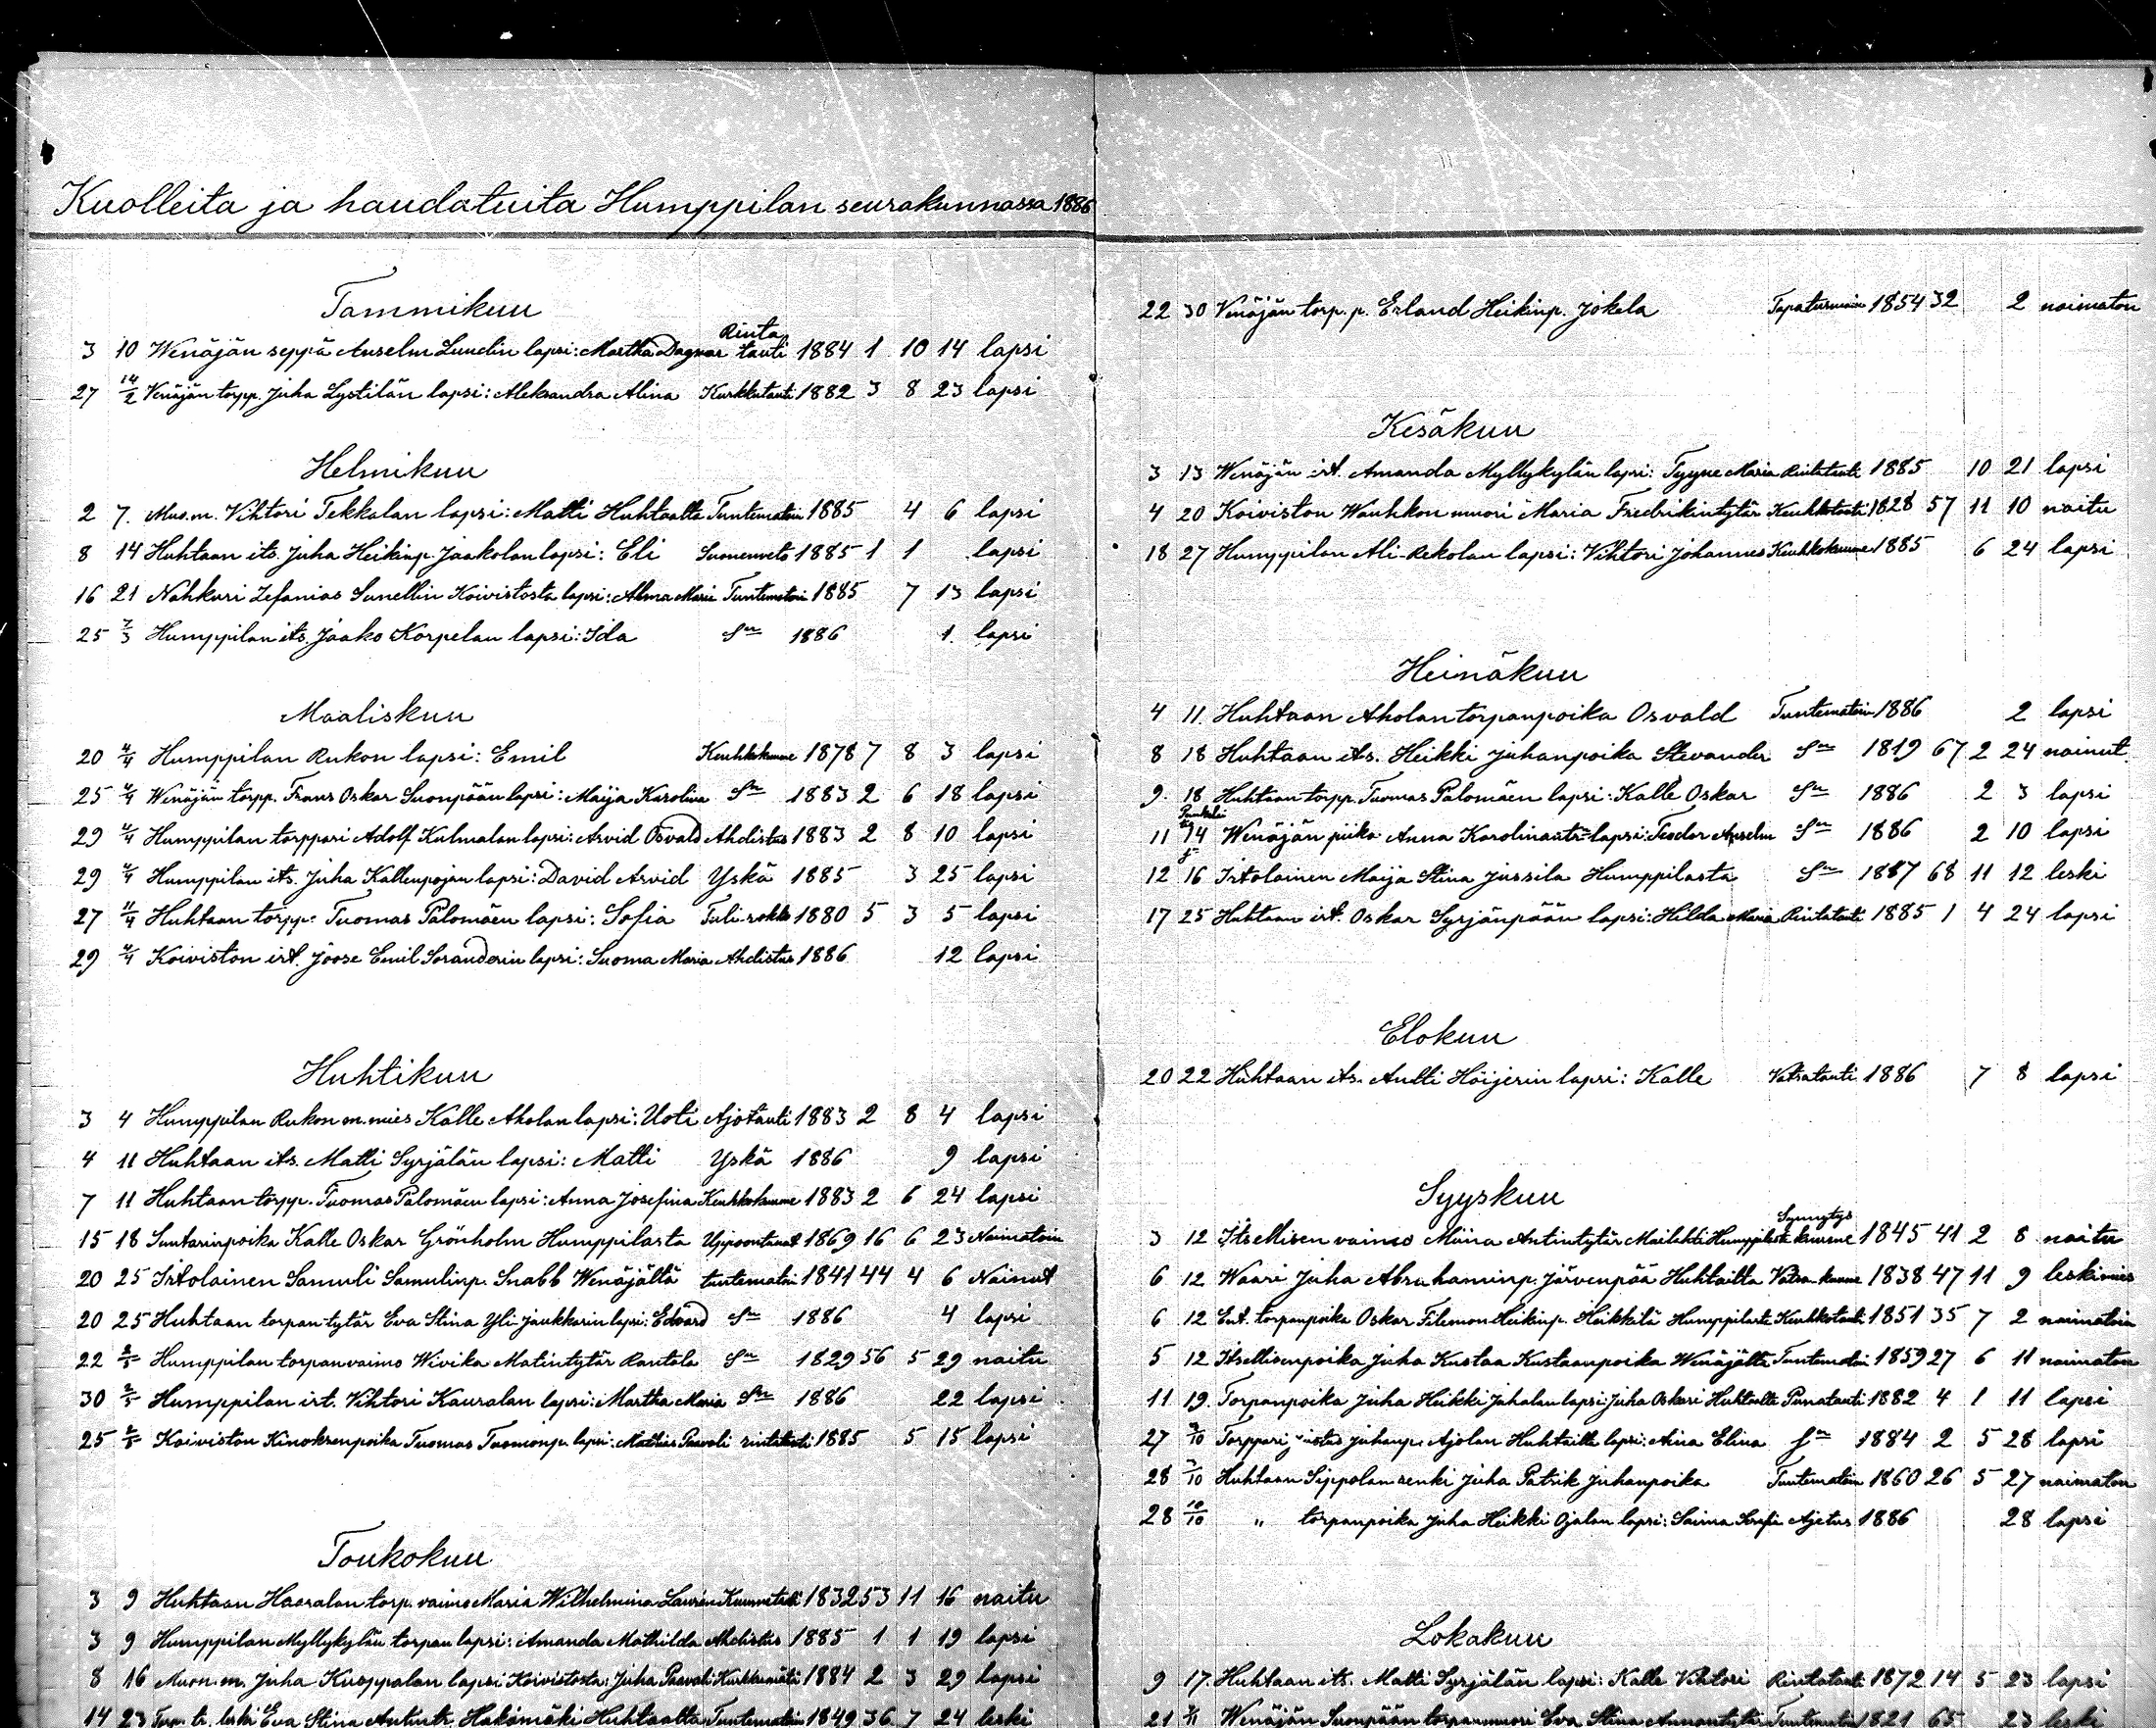 Kuolleita ja haudatuita Humppilan seurakunnassa 1886
Tammikuu
3 10 Wenäjän seppä Anselm Lundin lapsi: Martha Dagmar Rinta tauti 1884 1 10 14 lapsi
27 14/2 Venäjän torpp. Juha Lystilän lapsi: Aleksandra Alina Kurkkutauti 1882 3 8 23 lapsi
Helmikuu
2 7. Muo.m. Vihtori Tekkalan lapsi: Matti Huhtaalta Tuntematoin 1885 4 6 lapsi
8 14 Huhtaan its. Juha Heikinp. Jaakolan lapsi: Eli Suonenveto 1885 1 1 lapsi
16 21 Nahkuri Zefanias Sunellin Koivistosta lapsi: Alma Maria Tuntematoin 1885 7 13 lapsi
25 7/3 Humppilan its. Jaako Korpelan lapsi: Ida Sm 1886 1. lapsi
Maaliskuu
20 4/4 Humppilan Rukon lapsi: Emil Keuhkokuume 1878 7 8 3 lapsi
25 4/4 Wenäjän torpp. Frans Oskar Suonpään lapsi: Maija Karolina Sm 1883 2 6 18 lapsi
29 4/4 Humppilan torppari Adolf Kulmalan lapsi: Arvid Osvald Ahdistus 1883 2 8 10 lapsi
29 4/4 Humppilan its. Juha Kallenpojan lapsi: David Arvid Yskä 1885 3 25 lapsi
27 11/4 Huhtaan torpp. Tuomas Palomäen lapsi: Sofia Tuli-rokko 1880 5 3 5 lapsi
29 4/4 Koiviston irt. Joose Emil Soranderin lapsi: Suoma Maria Ahdistus 1886 12 lapsi
Huhtikuu
3 4 Humppilan Rukon m. mies Kalle Aholan lapsi: Uoti Ajotauti 1883 2 8 4 lapsi
4 11 Huhtaan its. Matti Syrjälän lapsi: Matti Yskä 1886 9 lapsi
7 11 Huhtaan torpp. Tuomas Palomäen lapsi: Anna Josefina Keuhkokuume 1883 2 6 24 lapsi
15 18 Suutarinpoika Kalle Oskar Grönholm Humppilasta 1869 16 6 23 Naimatoin
20 25 Irtolainen Samuli Samulinp. Snabb Wenäjältä tuntematoin 1841 44 4 6 Nainut
20 25 Huhtaan torpan-tytär Eva Stina Yli-Jaukkarin lapsi: Edvard Sm 1886 4 lapsi
22 2/5 Humppilan torpanvaimo Wivika Matintytär Rantala Sm 1829 56 5 29 naitu
30 2/5 Humppilan irt. Vihtori Kauralan lapsi: Martha Maria Sm 1886 22 lapsi
25 2/5 Koiviston Kinokrenpoika Tuomas Tuomonp. lapsi: Mathias Paavali rintatauti 1885 5 15 lapsi
Toukokuu
3 9 Huhtaan Haaralan torp. vaimo Maria Wilhelmina Kuumetauti 1832 53 11 16 naitu
3 9 Humppilan Myllykylän torpan lapsi: Amanda Mathilda Ahdistus 1885 1 1 19 lapsi
8 16 Muon.m. Juha Kuoppalan lapsi Koivistosta: Juha Paavali 1884 2 3 29 lapsi
14 23 Torp. tr. leski Eva Stina Antintr. Hakomäki Huhtaalta Tuntematoin 1849 36 7 24 leski
22 30 Venäjän torp. p. Erland Heikinp. Jokela Tapaturmain 1854 32 2 naimaton
Kesäkuu
3 13 Wenäjän irt. Amanda Myllykylän lapsi: Tyyne Maria Rintatauti 1885 10 21 lapsi
4 20 Koiviston Wauhkon muori Maria Fredrikintytär Keuhkotauti 1828 57 11 10 naitu
18 27 Humppilan Ali-Rekolan lapsi: Vihtori Johannes Keuhkokuume 1885 6 24 lapsi
Heinäkuu
4 11. Huhtaan Aholan torpanpoika Osvald Tuntematoin 1886 2 lapsi
8 18 Huhtaan its. Heikki Juhanpoika Stevander Sm 1819 67 2 24 nainut
9. 18 Huhtaan torpp. Tuomas Palomäen lapsi: Kalle Oskar Sm 1886 2 3 lapsi
11 14 Wenäjän piika Anna Karolina lapsi: Teodor Anselm Sm 1886 2 10 lapsi
12 16 Irtolainen Maija Stina Jussila Humppilasta Sm 1887 68 11 12 leski
17 25 Huhtaan irt. Oskar Syrjänpään lapsi: Hilda Maria Rintatauti 1885 1 4 24 lapsi
Elokuu
20 22 Huhtaan its. Antti Höijerin lapsi: Kalle Vatsatauti 1886 7 8 lapsi
Syyskuu
3 12 Itsellisen vaimo Miina Antintytär Mailehti Humppilasta Synnytys kuume 1845 41 2 8 naitu
6 12 Waari Juha Abrahaminp. Järvenpää Huhtailta Vatsa kuume 1838 47 11 9 leskimies
6 12 Ent. torpanpoika Oskar Filemon Heikinp. Heikkilä Humppilasta Keuhkotauti 1851 35 7 2 naimatoin
5 12 Itsellisenpoika Juha Kustaa Kustaanpoika Wenäjältä Tuntematoin 1859 27 6 11 naimaton
11 19. Torpanpoika Juha Heikki Jahalan lapsi: Juha Oskari Huhtaalta Punatauti 1882 4 1 11 lapsi
27 3/10 Torppari Juhanp. Ajolan Huhtailta lapsi: Aina Elina Sm 1884 2 5 28 lapsi
28 3/10 Huhtaan Sippolan renki Juha Patrik Juhanpoika Tuntematoin 1860 26 5 27 naimaton
28 10/10 " torpanpoika Juha Heikki Ojalan lapsi: Saima Ajetus 1886 28 lapsi
Lokakuu
9 17. Huhtaan its. Matti Syrjälän lapsi: Kalle Vihtori Rintatauti 1872 14 5 23 lapsi
21 Wenäjän Suonpään torpanmuori Eva Stina Tuntematoin 1821 65 23 leski